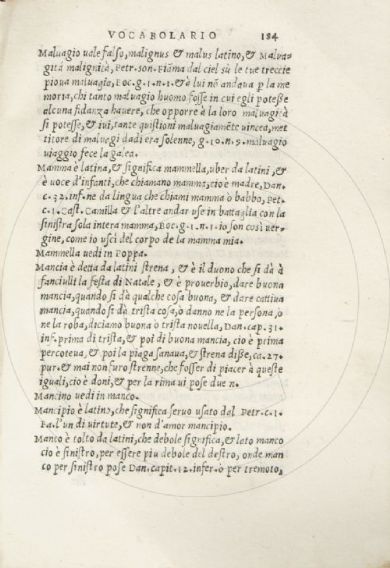 VOCABOLARIO 184
Malvagio uale falso, malignus & malus latino, & Malua-
gità malignità, Petr. son. Fiāma dal ciel sù le tue treccie
pioua maluagia, Boc. g. 1. n. 1. & è lui nō andaua p la me
moria, chi tanto maluagio huomo fosse in cui egli potesse
alcuna fidanza hauere, che opporre à la loro maluagità
si potesse, & iui, tante quistioni maluagiamēte uincea, met
titore di maluagi dadi era solenne, g. 10. n. 9. maluagio
uiaggio fece la galea.
Mamma è latina, & significa mammella, uber da latini, &
è uoce d'infanti, che chiamano mamma, cio è madre, Dan.
c. 32. inf. ne da lingua che chiami mamma ò babbo, Pet.
c. 1. Cast. Camilla & l'altre andar use in battaglia con la
sinistra sola intera mamma, Boc. g. 1. n. 1. io son così uer-
gine, come io usci del corpo de la mamma mia.
Mammella uedi in Poppa.
Mancia è detta da latini strena, & è il duono che si dà à
fanciulli la festa di Natale, & è prouerbio, dare buona
mancia, quando si dà qualche cosa buona, & dare cattiua
mancia, quando si dà trista cosa, ò danno ne la persona, ò
ne la roba, diciamo buona ò trista nouella, Dan. cap. 31.
inf. prima di trista, & poi di buona mancia, cio è prima
percoteua, & poi la piaga sanaua, & strena disse, ca. 27.
pur. & mai non furo strenne, che fosser di piacer à queste
iguali, cio è doni, & per la rima ui pose due n.
Mancino uedi in manco.
Mancipio è latino, che significa seruo usato dal Petr. c. 1.
Fa. l'un di uirtute, & non d'amor mancipio.
Manco è tolto da latini, che debole significa, & leto manco
cio è sinistro, per essere piu debole del destro, onde man
co per sinistro pose Dan. capit. 12. infer. ò per tremoto,